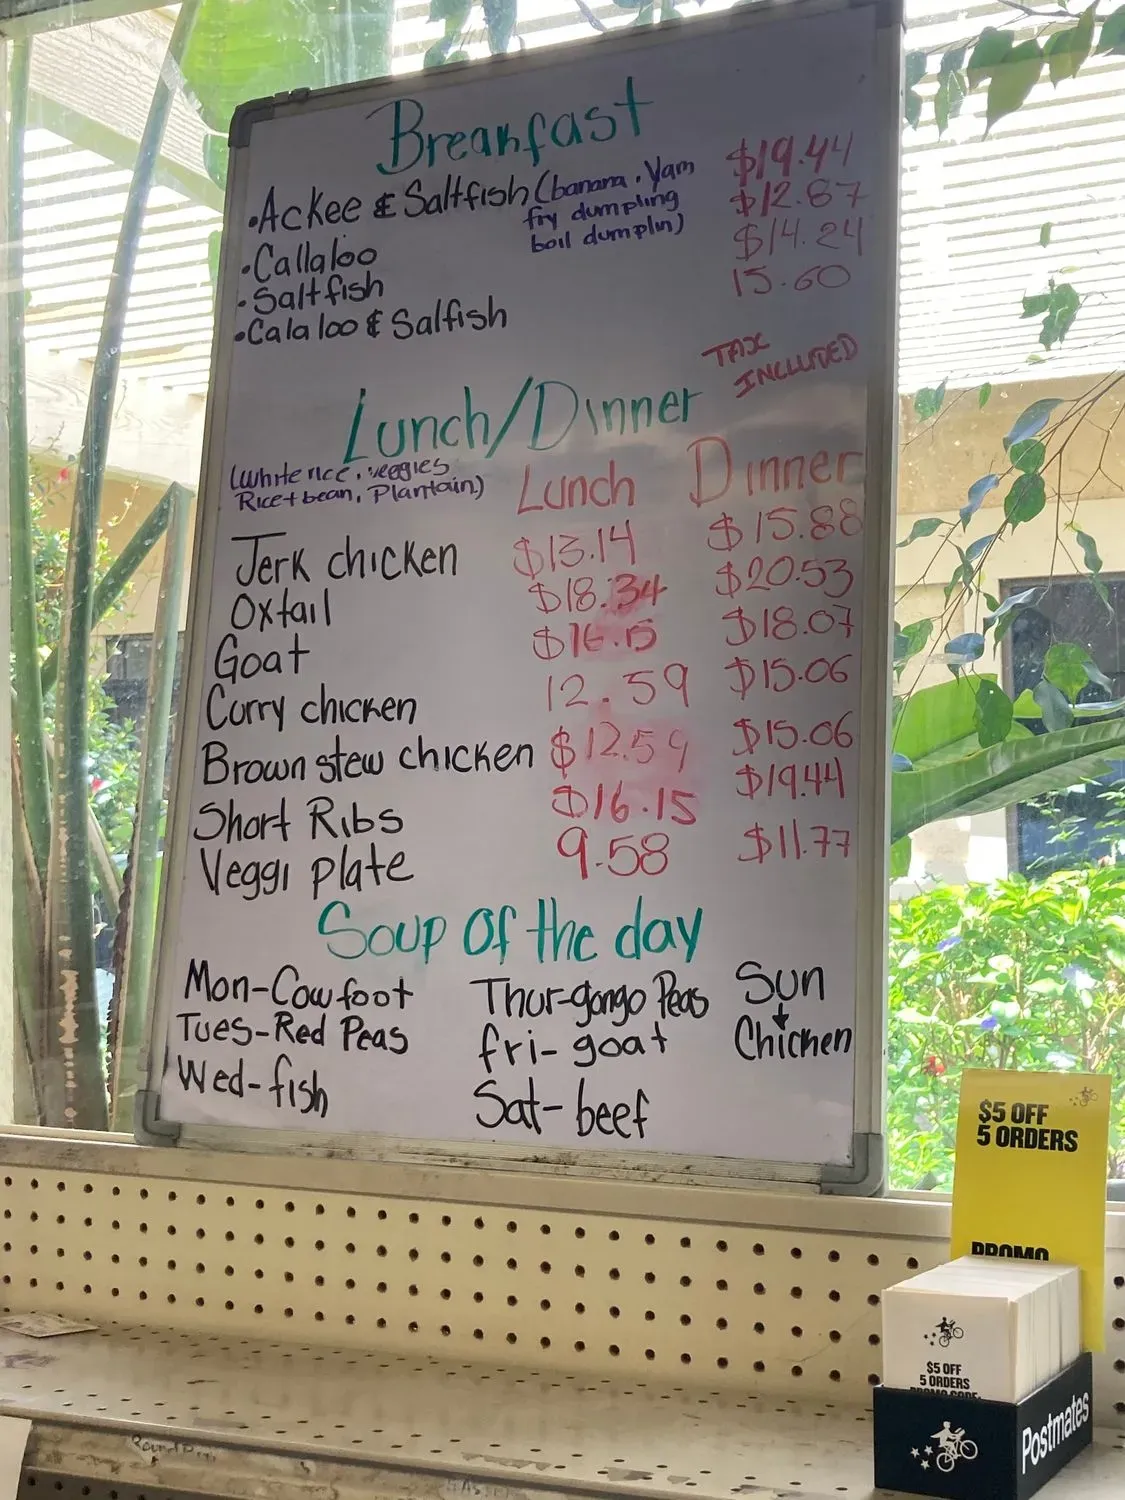 Breakfast
•Ackee & Saltfish (banana, Yam $19.44
fry dumpling $12.87
boil dumplin) $14.24
•Callaloo 15.60
•Saltfish
•Calaloo & Salfish
TAX
INCLUDED
Lunch/Dinner
(white rice, veggies
Rice+bean, Plantain) Lunch Dinner
Jerk chicken $13.14 $15.88
Oxtail $18.34 $20.53
Goat $16.15 $18.07
Curry chicken 12.59 $15.06
Brown stew chicken $12.59 $15.06
Short Ribs $16.15 $19.44
Veggi plate 9.58 $11.77
Soup Of the day
Mon-Cow foot Thur-gongo Peas Sun
Tues-Red Peas fri-goat Chicken
Wed-fish Sat-beef
$5 OFF
5 ORDERS
PROMO
$5 OFF
5 ORDERS
PROMO CODE:
Postmates